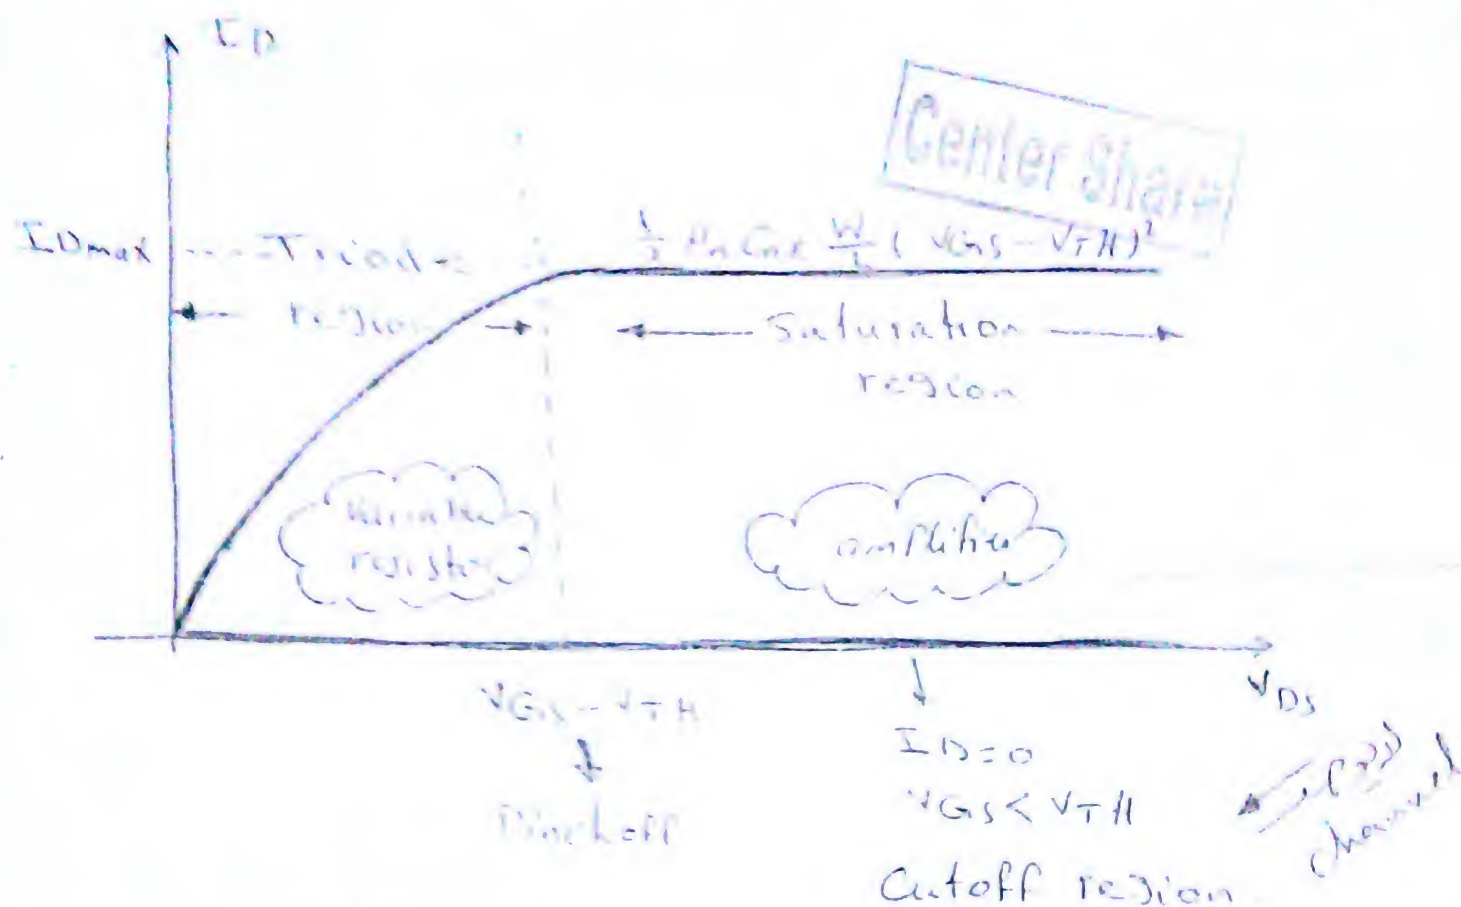 ID
Center Share
IDmax Triode
1/2 μn Cox W/L (VGS - VTH)²
region
Saturation
region
resistor
amplifier
VDS
VGS - VTH
Pinchoff
ID = 0
VGS < VTH
Cutoff region
channel